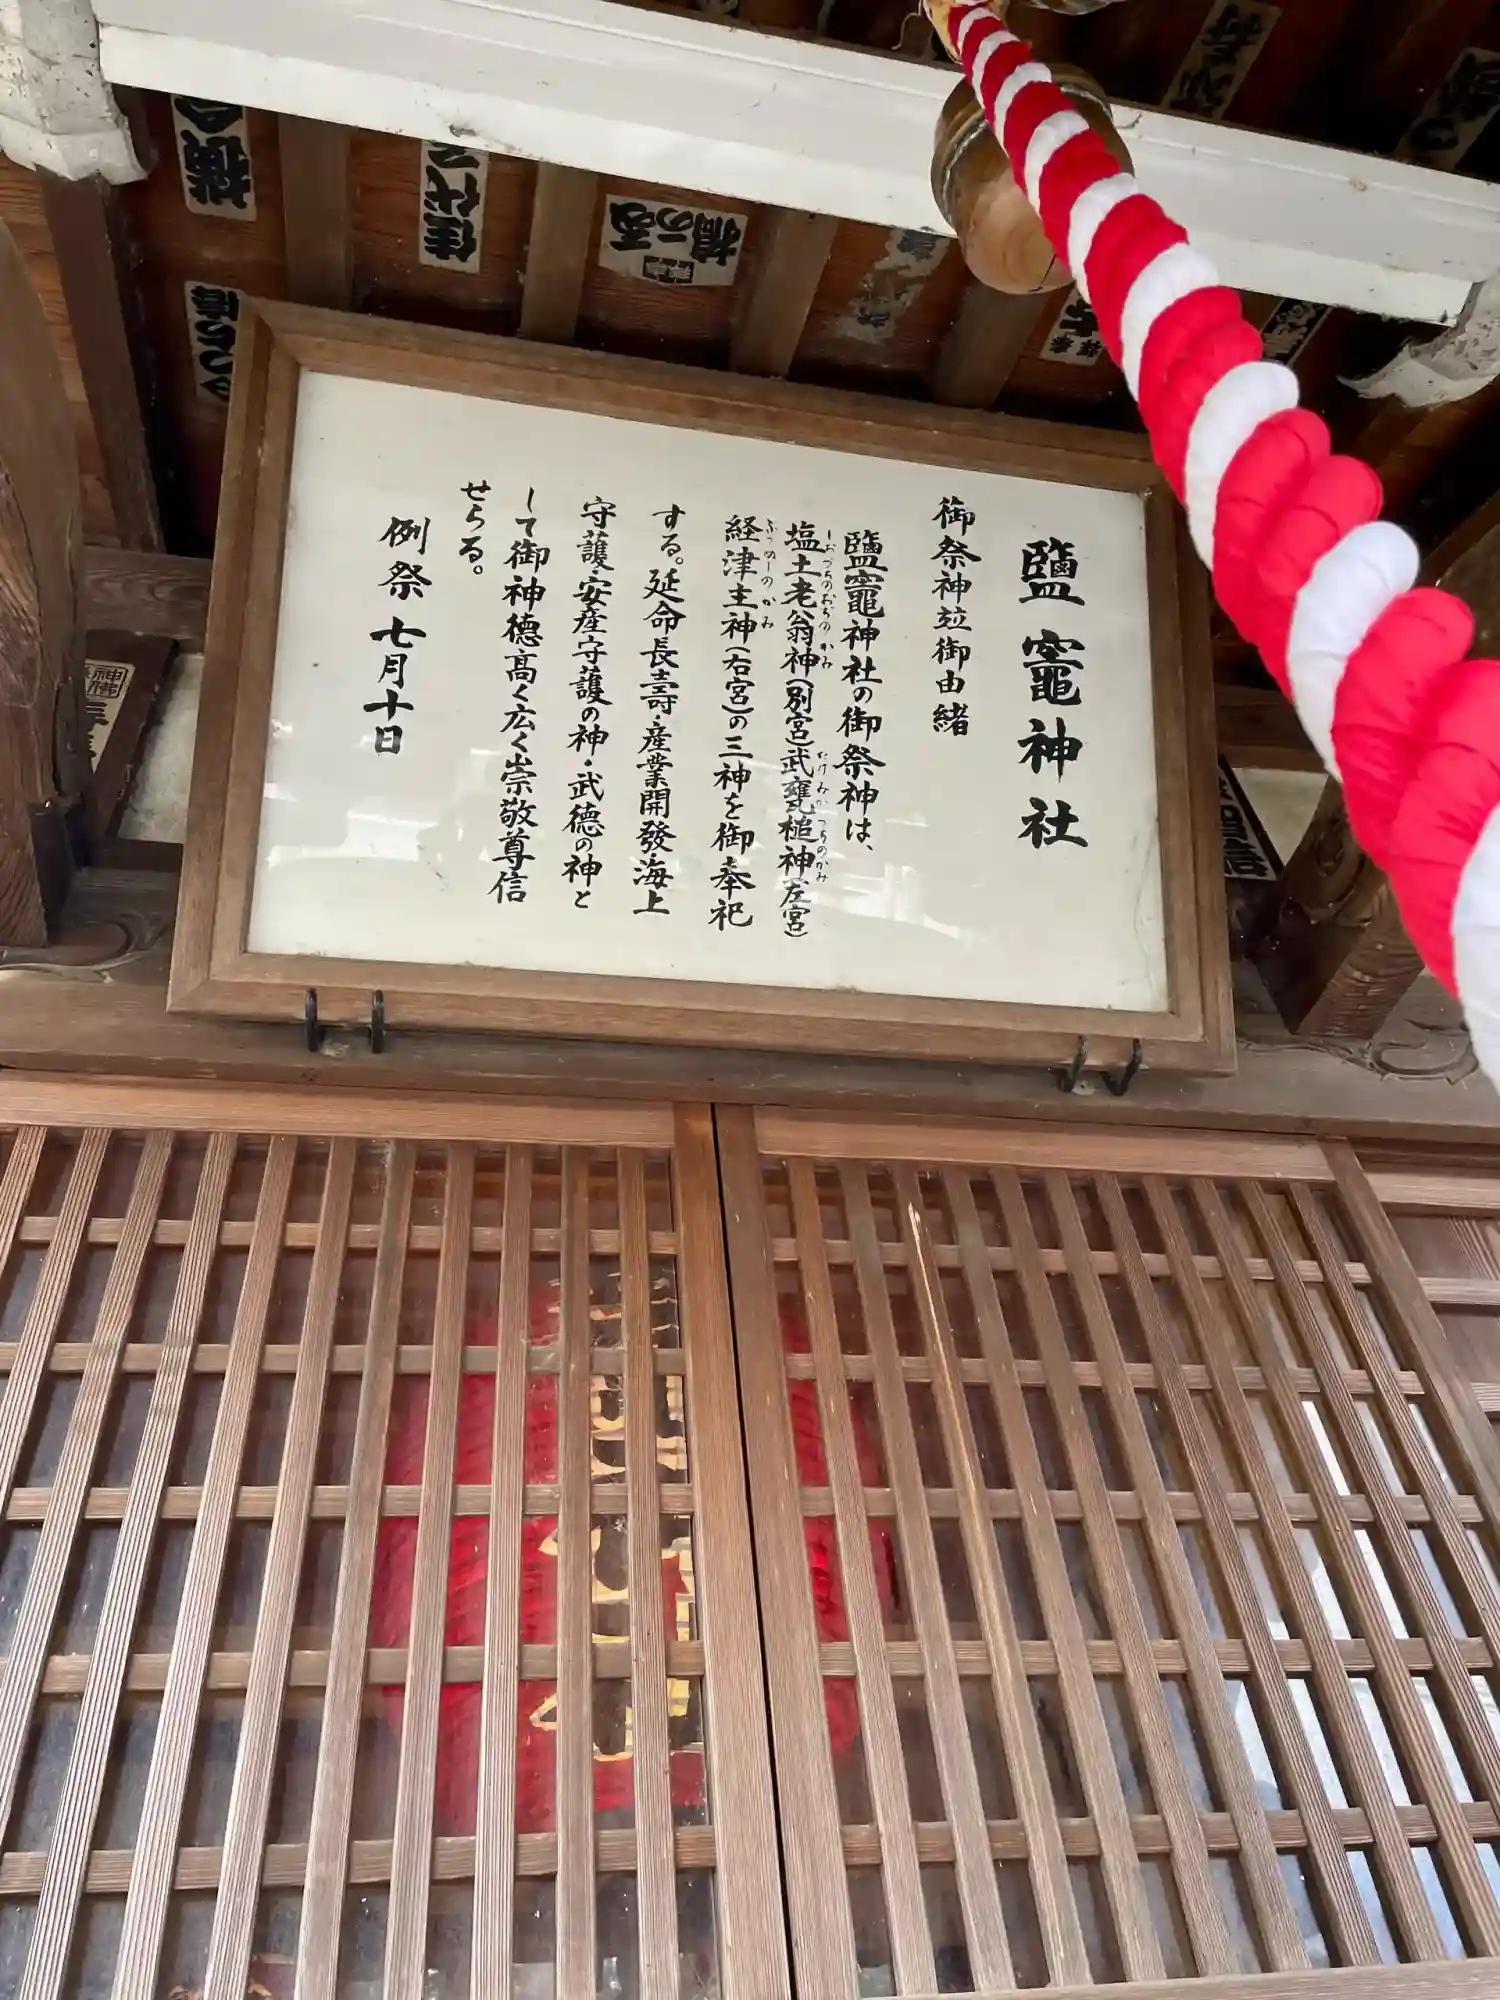 鹽竈神社
御祭神竝御由緒
鹽竈神社の御祭神は、
塩土老翁神(別宮)武甕槌神(左宮)
しおづちのおぢのかみ
たけみかづちのかみ
経津主神(右宮)の三神を御奉祀
ふつぬしのかみ
する。延命長壽・産業開發・海上
守護・安産守護の神・武徳の神と
して御神徳高く広く崇敬尊信
せらる。
例祭 七月十日
佳代
神佛